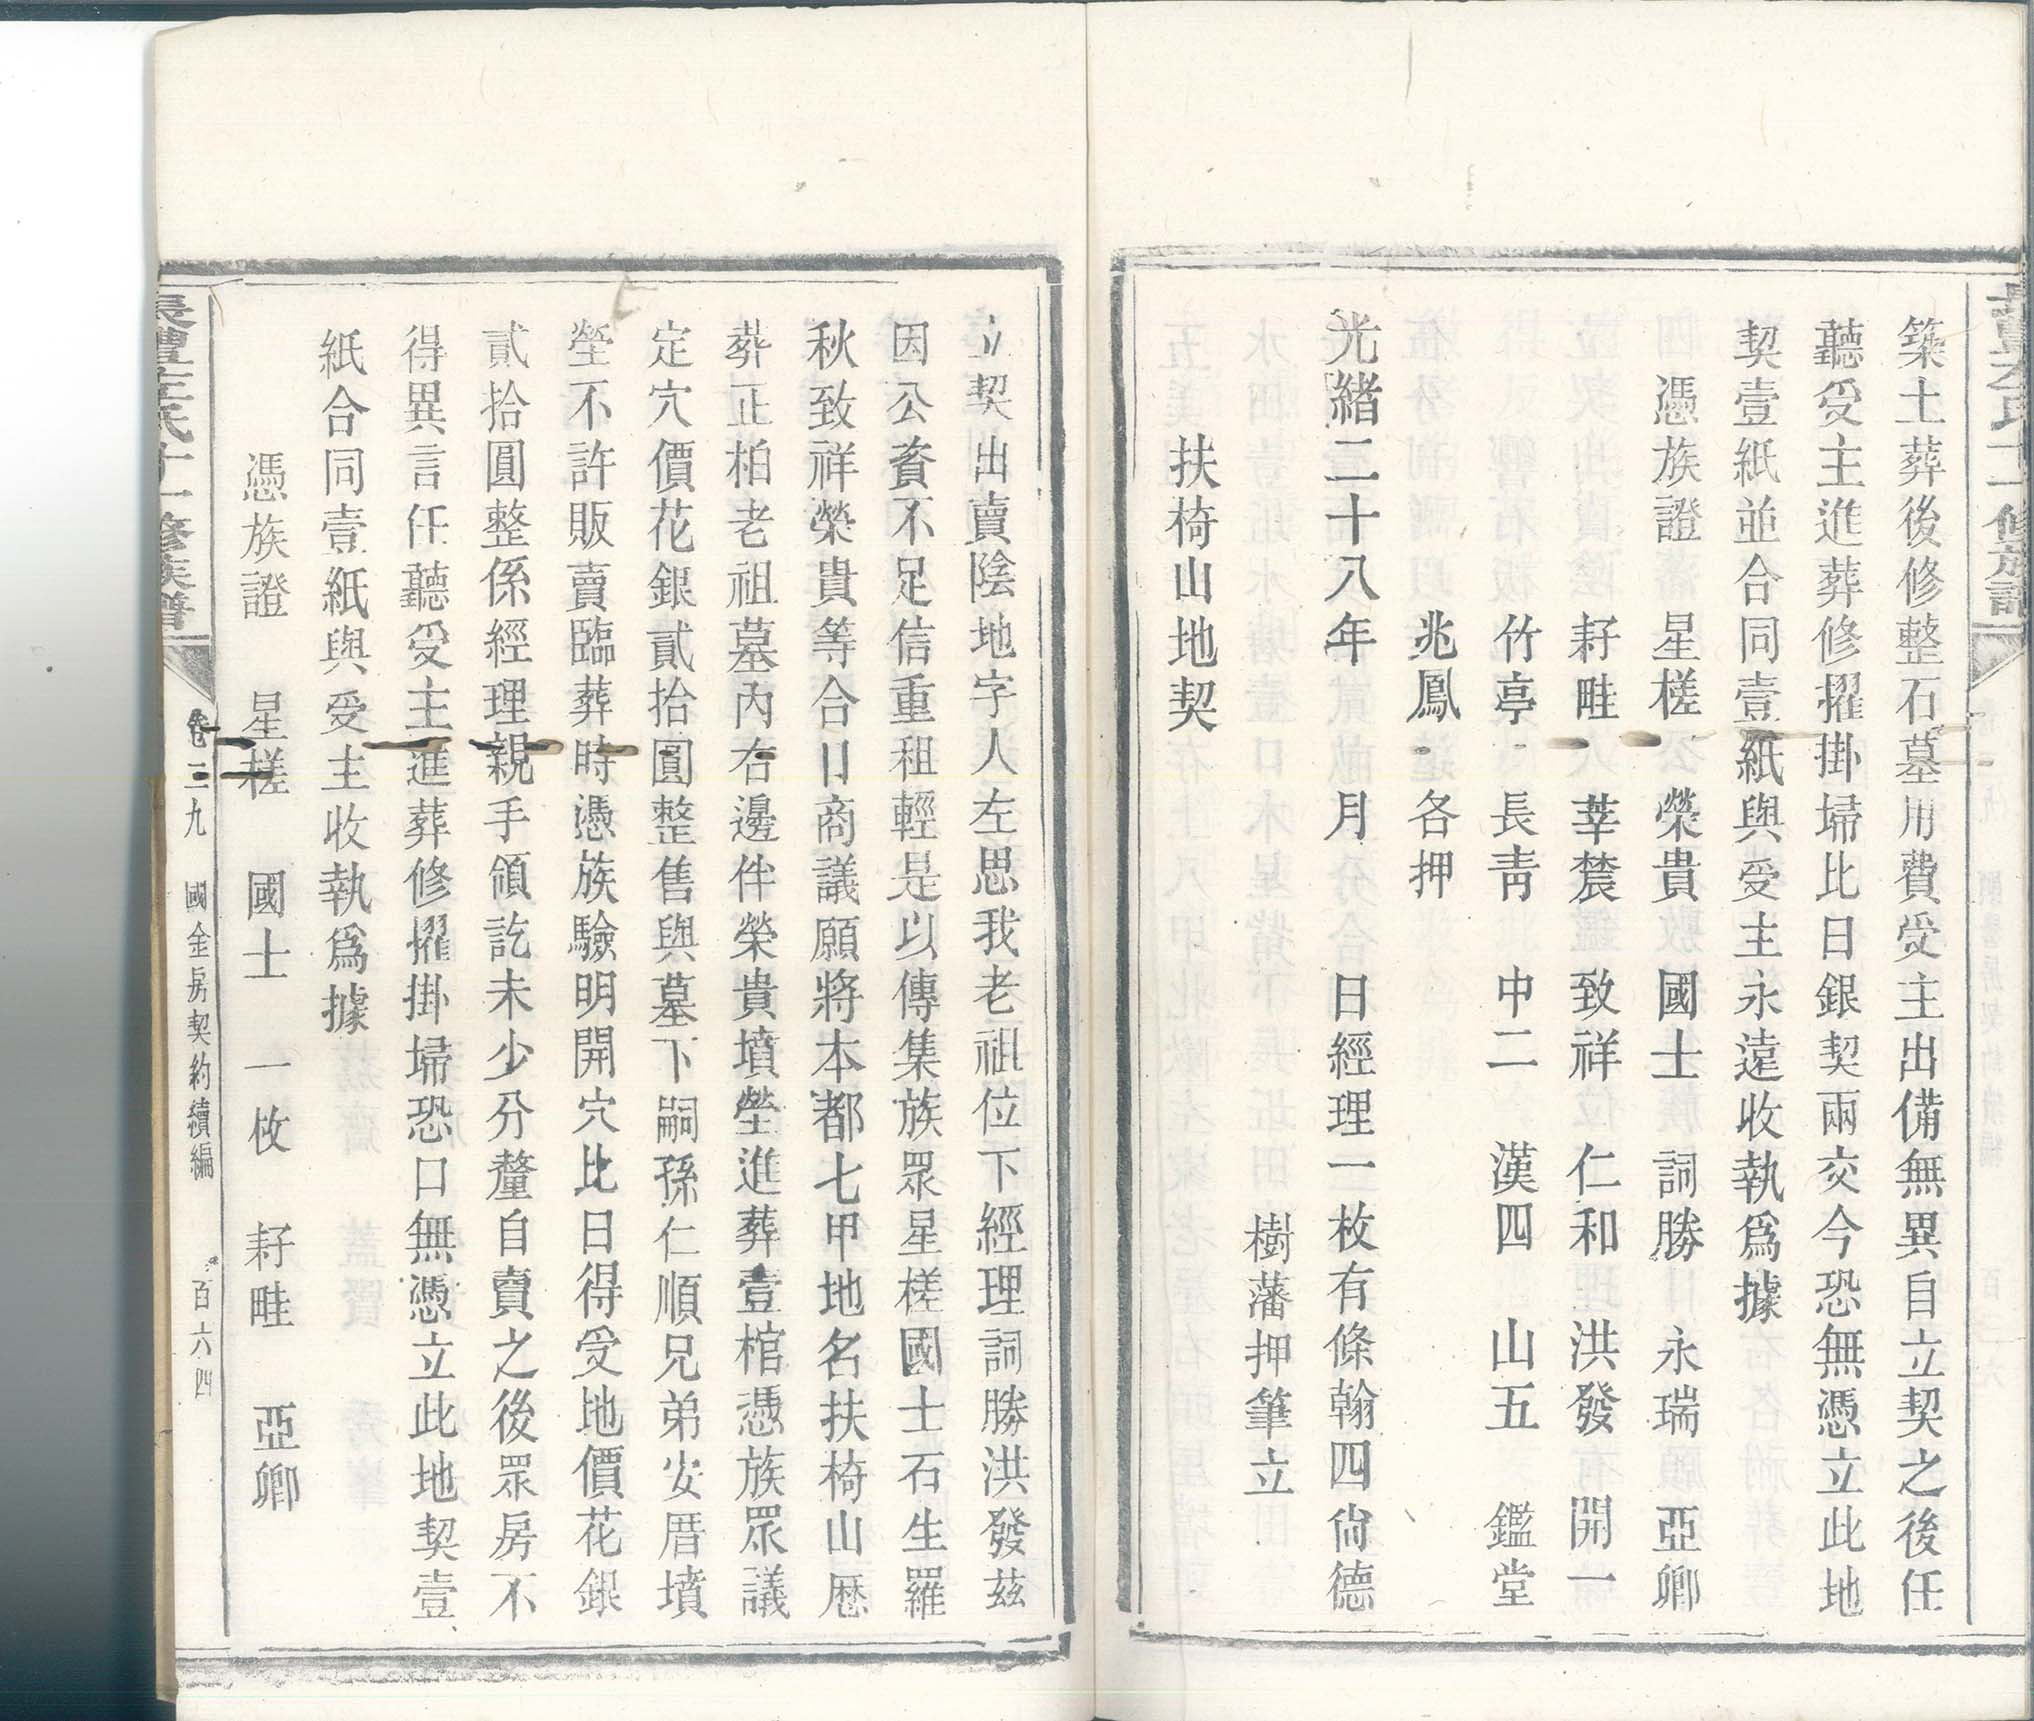 築土葬後修整石墓用費受主出備無異自立契之後任
聽受主進葬修擢掛埽比日銀契兩交今恐無憑立此地
契壹紙並合同壹紙與受主永遠收執爲據
憑族證 星槎 榮貴 國士 詞勝 永瑞 亞卿
耔畦 莘農 致祥 仁和 洪發 開一
竹亭 長靑 中二 漢四 山五 鑑堂
兆鳳 各押
光緖二十八年 月 日經理一枚有條翰四尙德
樹藩押筆立
扶椅山地契
立契出賣陰地字人左思我老祖位下經理詞勝洪發茲
因公資不足信重租輕是以傳集族眾星槎國士石生羅
秋致祥榮貴等合口商議願將本都七甲地名扶椅山厯
葬正柏老祖墓內右邊伴榮貴墳塋進葬壹棺憑族眾議
定穴價花銀貳拾圓整售與墓下嗣孫仁順兄弟安厝墳
塋不許販賣臨葬時憑族驗明開穴比日得受地價花銀
貳拾圓整係經理親手領訖未少分釐自賣之後眾房不
得異言任聽受主進葬修擢掛埽恐口無憑立此地契壹
紙合同壹紙與受主收執爲據
憑族證 星槎 國士 一枚 耔畦 亞卿
長豐左氏十一修族譜 卷三九 國金房契約續編 百六四